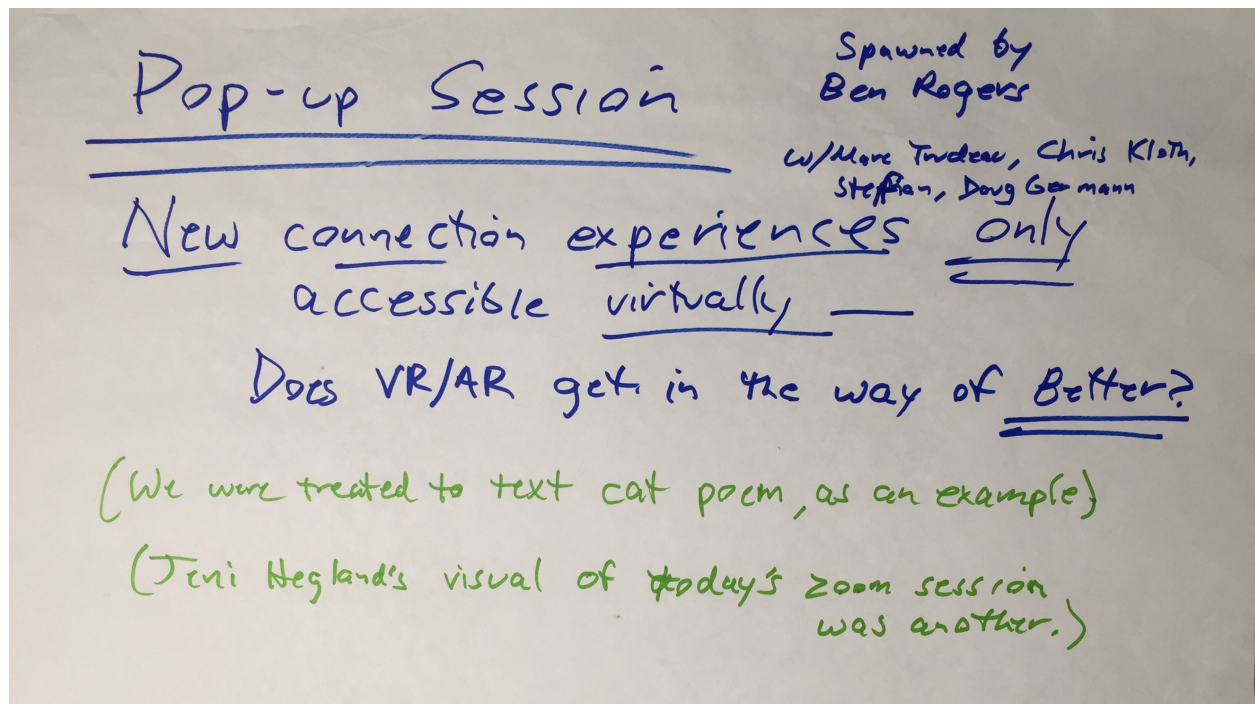 Pop-up Session
Spawned by
Ben Rogers
w/Marc Trudeau, Chris Kloth,
Stephan, Doug Germann
New connection experiences only
accessible virtually —
Does VR/AR get in the way of Better?
(We were treated to text cat poem, as an example)
(Jeni Hegland's visual of today's zoom session
was another.)